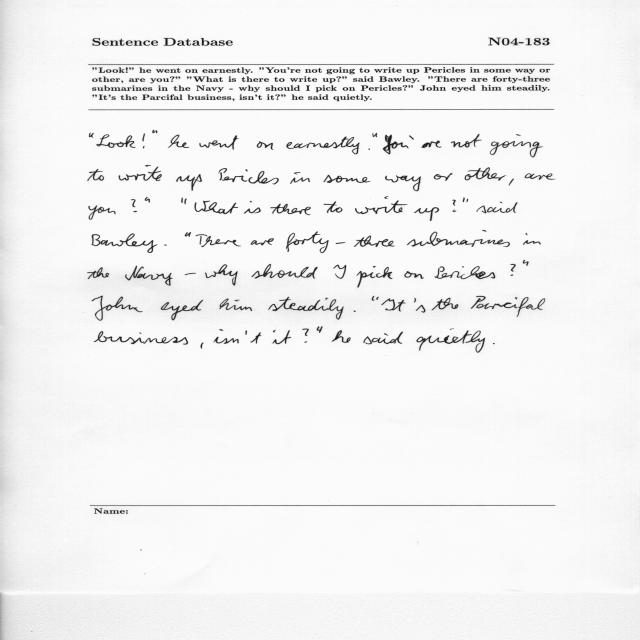 Sentence Database N04-183
"Look!" he went on earnestly. "You're not going to write up Pericles in some way or
other, are you?" "What is there to write up?" said Bawley. "There are forty-three
submarines in the Navy - why should I pick on Pericles?" John eyed him steadily.
"It's the Parcifal business, isn't it?" he said quietly.
"Look!" he went on earnestly. "You are not going
to write up Pericles in some way or other, are
you?" "What is there to write up?" said
Bawley. "There are forty-three submarines in
the Navy - why should I pick on Pericles?"
John eyed him steadily. "It's the Parcifal
business, isn't it?" he said quietly.
Name: